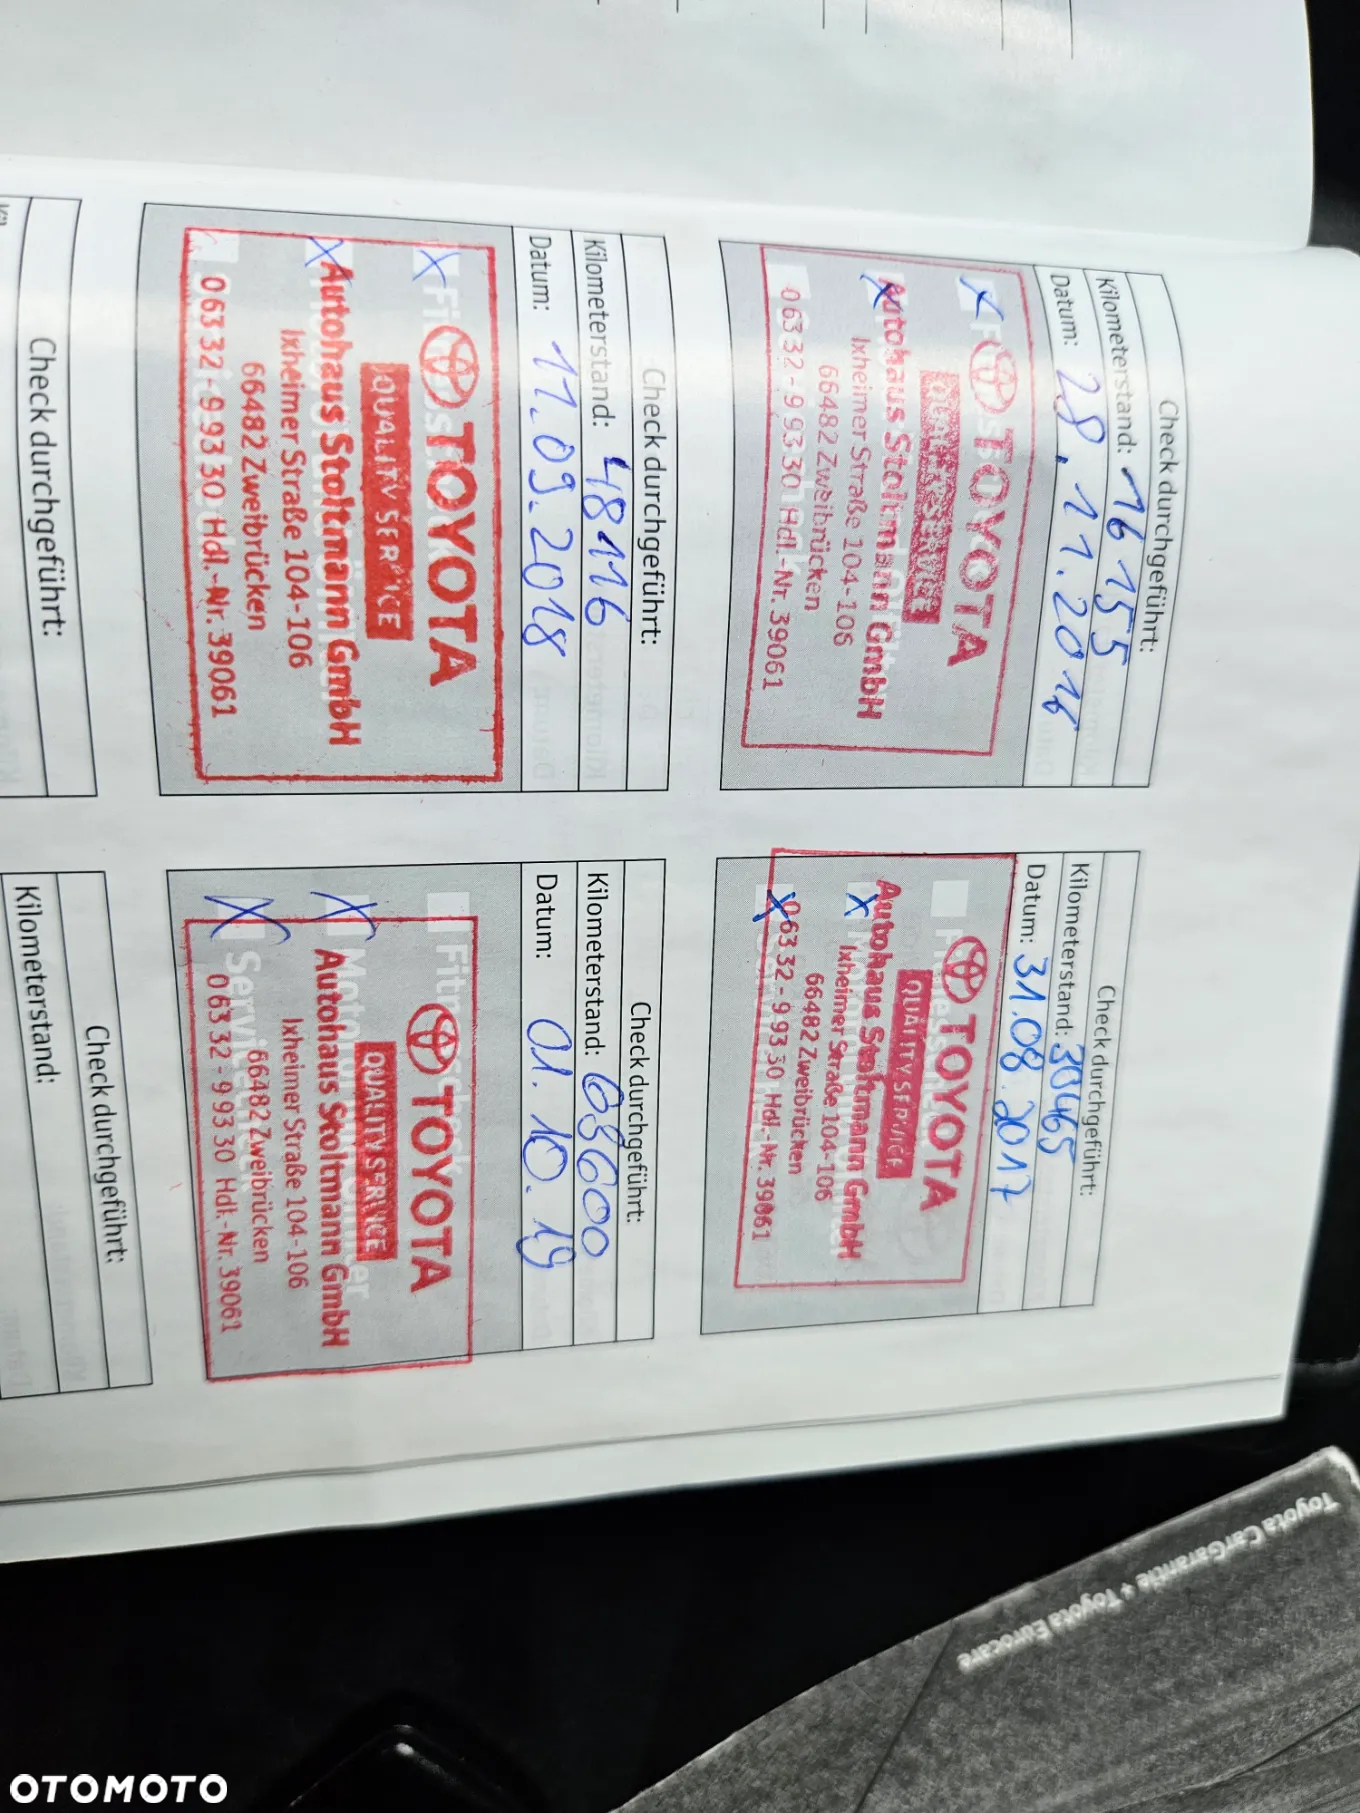 Check durchgeführt:
Kilometerstand: 16 155
Datum: 28.11.2016
TOYOTA
QUALITY SERVICE
Autohaus Stoltmann GmbH
Ixheimer Straße 104-106
66482 Zweibrücken
0 63 32 - 9 93 30 Hdl.-Nr. 39061
Check durchgeführt:
Kilometerstand: 30465
Datum: 31.08.2017
TOYOTA
QUALITY SERVICE
Autohaus Stoltmann GmbH
Ixheimer Straße 104-106
66482 Zweibrücken
0 63 32 - 9 93 30 Hdl.-Nr. 39061
Check durchgeführt:
Kilometerstand: 48116
Datum: 11.09.2018
TOYOTA
QUALITY SERVICE
Autohaus Stoltmann GmbH
Ixheimer Straße 104-106
66482 Zweibrücken
0 63 32 - 9 93 30 Hdl.-Nr. 39061
Check durchgeführt:
Kilometerstand: 63600
Datum: 01.10.19
Fitnesscheck
TOYOTA
QUALITY SERVICE
Autohaus Stoltmann GmbH
Ixheimer Straße 104-106
66482 Zweibrücken
0 63 32 - 9 93 30 Hdl.-Nr. 39061
Check durchgeführt:
Check durchgeführt:
Kilometerstand:
Toyota CarGarantie + Toyota Eurocare
OTOMOTO